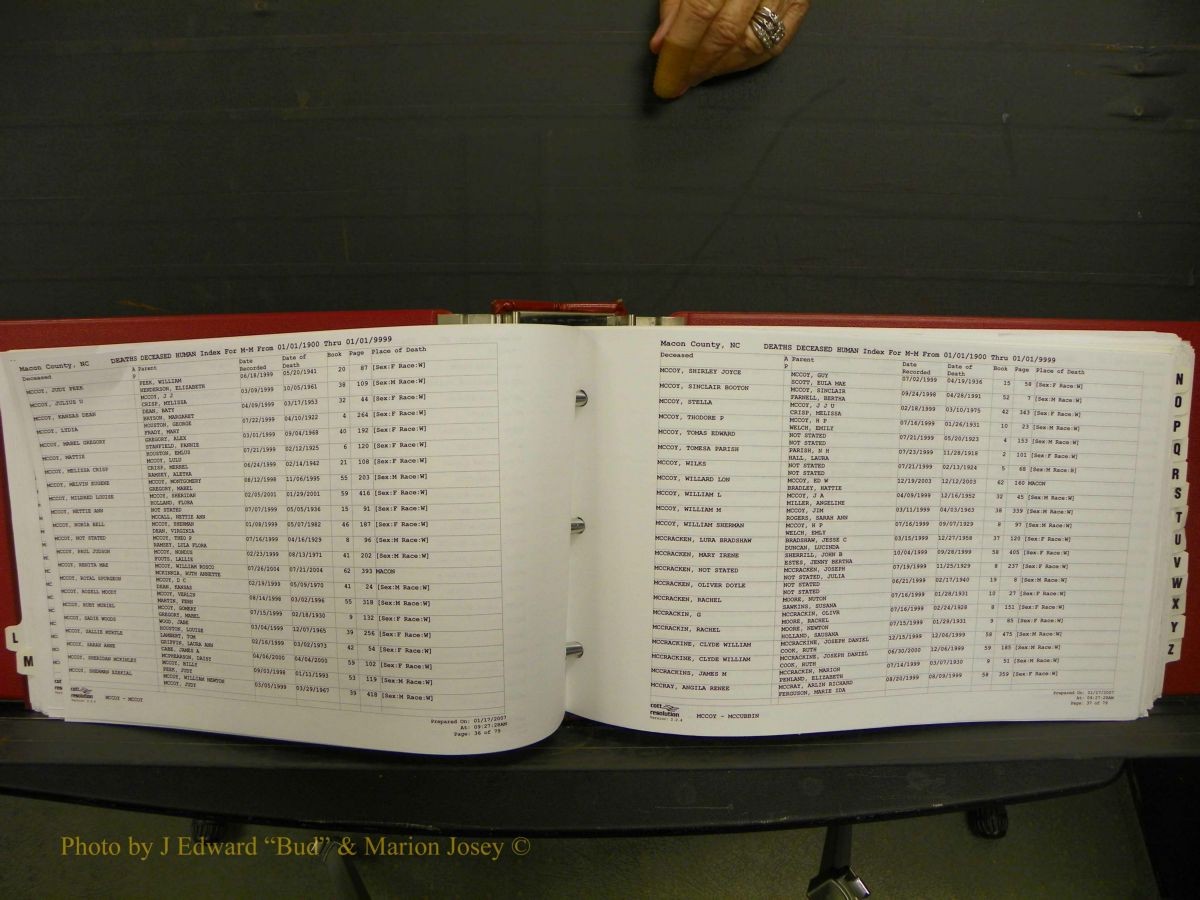 Macon County, NC DEATHS DECEASED HUMAN Index For M-M From 01/01/1900 Thru 01/01/9999
Deceased A Parent Date Recorded Date of Death Book Page Place of Death
P
MCCOY, JUDY PEEK PEEK, WILLIAM 06/18/1999 05/20/1941 20 87 [Sex:F Race:W]
HENDERSON, ELIZABETH
MCCOY, JULIUS U MCCOY, J J 03/09/1999 10/05/1961 38 109 [Sex:M Race:W]
CRISP, MELISSA
MCCOY, KANSAS DEAN DEAN, BATY 04/09/1999 03/17/1953 32 44 [Sex:F Race:W]
BRYSON, MARGARET
MCCOY, LYDIA HOUSTON, GEORGE 07/22/1999 04/10/1922 4 264 [Sex:F Race:W]
FRADY, MARY
MCCOY, MABEL GREGORY GREGORY, ALEX 03/01/1999 09/04/1968 40 192 [Sex:F Race:W]
STANFIELD, FANNIE
MCCOY, MATTIE HOUSTON, EMLUS 07/21/1999 02/12/1925 6 120 [Sex:F Race:W]
MCCOY, LULU
MCCOY, MELISSA CRISP CRISP, MERREL 06/24/1999 02/14/1942 21 108 [Sex:F Race:W]
RAMSEY, ALETHA
MCCOY, MELVIN EUGENE MCCOY, MONTGOMERY 08/12/1998 11/06/1995 55 203 [Sex:M Race:W]
GREGORY, MABEL
MCCOY, MILDRED LOUISE MCCOY, SHERIDAN 02/05/2001 01/29/2001 59 416 [Sex:F Race:W]
HOLLAND, FLORA
MCCOY, NETTIE ANN NOT STATED 07/07/1999 05/05/1936 15 91 [Sex:F Race:W]
MCCALL, NETTIE ANN
MCCOY, NORIA BELL MCCOY, SHERMAN 01/08/1999 05/07/1982 46 187 [Sex:F Race:W]
DEAN, VIRGINIA
MCCOY, NOT STATED MCCOY, THEO P 07/16/1999 04/16/1929 8 96 [Sex:M Race:W]
RAMSEY, LULA FLORA
MCCOY, PAUL JUDSON MCCOY, NONDUS 02/23/1999 08/13/1971 41 202 [Sex:M Race:W]
FOUTS, LALLIN
MCCOY, RENITA MAE MCCOY, WILLIAM ROSCO 07/26/2004 07/21/2004 62 393 MACON
MCKINNIA, RUTH ANNETTE
MCCOY, ROYAL SPURGEON MCCOY, D C 02/19/1999 05/09/1970 41 24 [Sex:M Race:W]
DEAN, KANSAS
MCCOY, ROZELL MOODY MCCOY, VERLIN 08/14/1998 03/02/1996 55 318 [Sex:M Race:W]
MARTIN, FERN
MCCOY, RUBY MURIEL MCCOY, GOMERY 07/15/1999 02/18/1930 9 132 [Sex:F Race:W]
GREGORY, MABEL
MCCOY, SADIE WOODS WOOD, JABE 03/04/1999 12/07/1965 39 256 [Sex:F Race:W]
HOUSTON, LOUISE
MCCOY, SALLIE MYRTLE LAMBERT, TOM 02/16/1999 03/02/1973 42 54 [Sex:F Race:W]
GRIFFIN, LAURA ANN
MCCOY, SARAH ANNE CABE, JAMES A 04/06/2000 04/04/2000 59 102 [Sex:F Race:W]
MCPHEARSON, DAISY
MCCOY, SHERIDAN MCKINLEY MCCOY, BILLY 09/03/1998 01/11/1993 53 119 [Sex:M Race:W]
PEEK, JUDY
MCCOY, SHERMAN EZEKIAL MCCOY, WILLIAM NEWTON 03/05/1999 03/29/1967 39 418 [Sex:M Race:W]
MCCOY, JUDY
cott resolution MCCOY - MCCOY
Prepared On: 01/17/2007
At: 09:27:28AM
Page: 36 of 79
L
M
Macon County, NC DEATHS DECEASED HUMAN Index For M-M From 01/01/1900 Thru 01/01/9999
Deceased A Parent Date Recorded Date of Death Book Page Place of Death
P
MCCOY, SHIRLEY JOYCE MCCOY, GUY 07/02/1999 04/19/1936 15 58 [Sex:F Race:W]
SCOTT, EULA MAE
MCCOY, SINCLAIR BOOTON MCCOY, SINCLAIR 09/24/1998 04/28/1991 52 7 [Sex:M Race:W]
PARNELL, BERTHA
MCCOY, STELLA MCCOY, J J U 02/18/1999 03/10/1975 42 343 [Sex:F Race:W]
CRISP, MELISSA
MCCOY, THODORE P MCCOY, H P 07/16/1999 01/26/1931 10 23 [Sex:M Race:W]
WELCH, EMILY
MCCOY, TOMAS EDWARD NOT STATED 07/21/1999 05/20/1923 4 153 [Sex:M Race:W]
NOT STATED
MCCOY, TOMESA PARISH PARISH, N H 07/23/1999 11/28/1918 2 101 [Sex:F Race:W]
HALL, LAURA
MCCOY, WILKS NOT STATED 07/21/1999 02/13/1924 5 68 [Sex:M Race:B]
NOT STATED
MCCOY, WILLARD LON MCCOY, ED W 12/19/2003 12/12/2003 62 160 MACON
BRADLEY, HATTIE
MCCOY, WILLIAM L MCCOY, J A 04/09/1999 12/16/1952 32 45 [Sex:M Race:W]
MILLER, ANGELINE
MCCOY, WILLIAM M MCCOY, JIM 03/11/1999 04/03/1963 38 339 [Sex:M Race:W]
ROGERS, SARAH ANN
MCCOY, WILLIAM SHERMAN MCCOY, H P 07/16/1999 09/07/1929 8 97 [Sex:M Race:W]
WELCH, EMLY
MCCRACKEN, LURA BRADSHAW BRADSHAW, JESSE C 03/15/1999 12/27/1958 37 120 [Sex:F Race:W]
DUNCAN, LUCINDA
MCCRACKEN, MARY IRENE SHERRILL, JOHN B 10/04/1999 09/28/1999 58 405 [Sex:F Race:W]
ESTES, JENNY BERTHA
MCCRACKEN, NOT STATED MCCRACKEN, JOSEPH 07/19/1999 11/25/1929 8 237 [Sex:F Race:W]
NOT STATED, JULIA
MCCRACKEN, OLIVER DOYLE NOT STATED 06/21/1999 02/17/1940 19 8 [Sex:M Race:W]
NOT STATED
MCCRACKEN, RACHEL MOORE, NUTON 07/16/1999 01/28/1931 10 27 [Sex:F Race:W]
DAWKINS, SUSANA
MCCRACKIN, G MCCRACKIN, OLIVR 07/16/1999 02/24/1928 8 151 [Sex:F Race:W]
MOORE, RACHEL
MCCRACKIN, RACHEL MOORE, NEWTON 07/15/1999 01/29/1931 9 85 [Sex:F Race:W]
HOLLAND, SAUSANA
MCCRACKINE, CLYDE WILLIAM MCCRACKINE, JOSEPH DANIEL 12/15/1999 12/06/1999 58 475 [Sex:M Race:W]
COOK, RUTH
MCCRACKINE, CLYDE WILLIAM MCCRACKINE, JOSEPH DANIEL 06/30/2000 12/06/1999 59 185 [Sex:M Race:W]
COOK, RUTH
MCCRACKINS, JAMES M MCCRACKIN, MARION 07/14/1999 03/07/1930 9 51 [Sex:M Race:W]
PENLAND, ELIZABETH
MCCRAY, ANGILA RENEE MCCRAY, ARLIN RICHARD 08/20/1999 08/09/1999 58 359 [Sex:F Race:W]
FERGUSON, MARIE IDA
cott resolution MCCOY - MCCUBBIN
Prepared On: 01/17/2007
At: 09:27:28AM
Page: 37 of 79
N
O
P
Q
R
S
T
U
V
W
X
Y
Z
Photo by J Edward “Bud” & Marion Josey ©